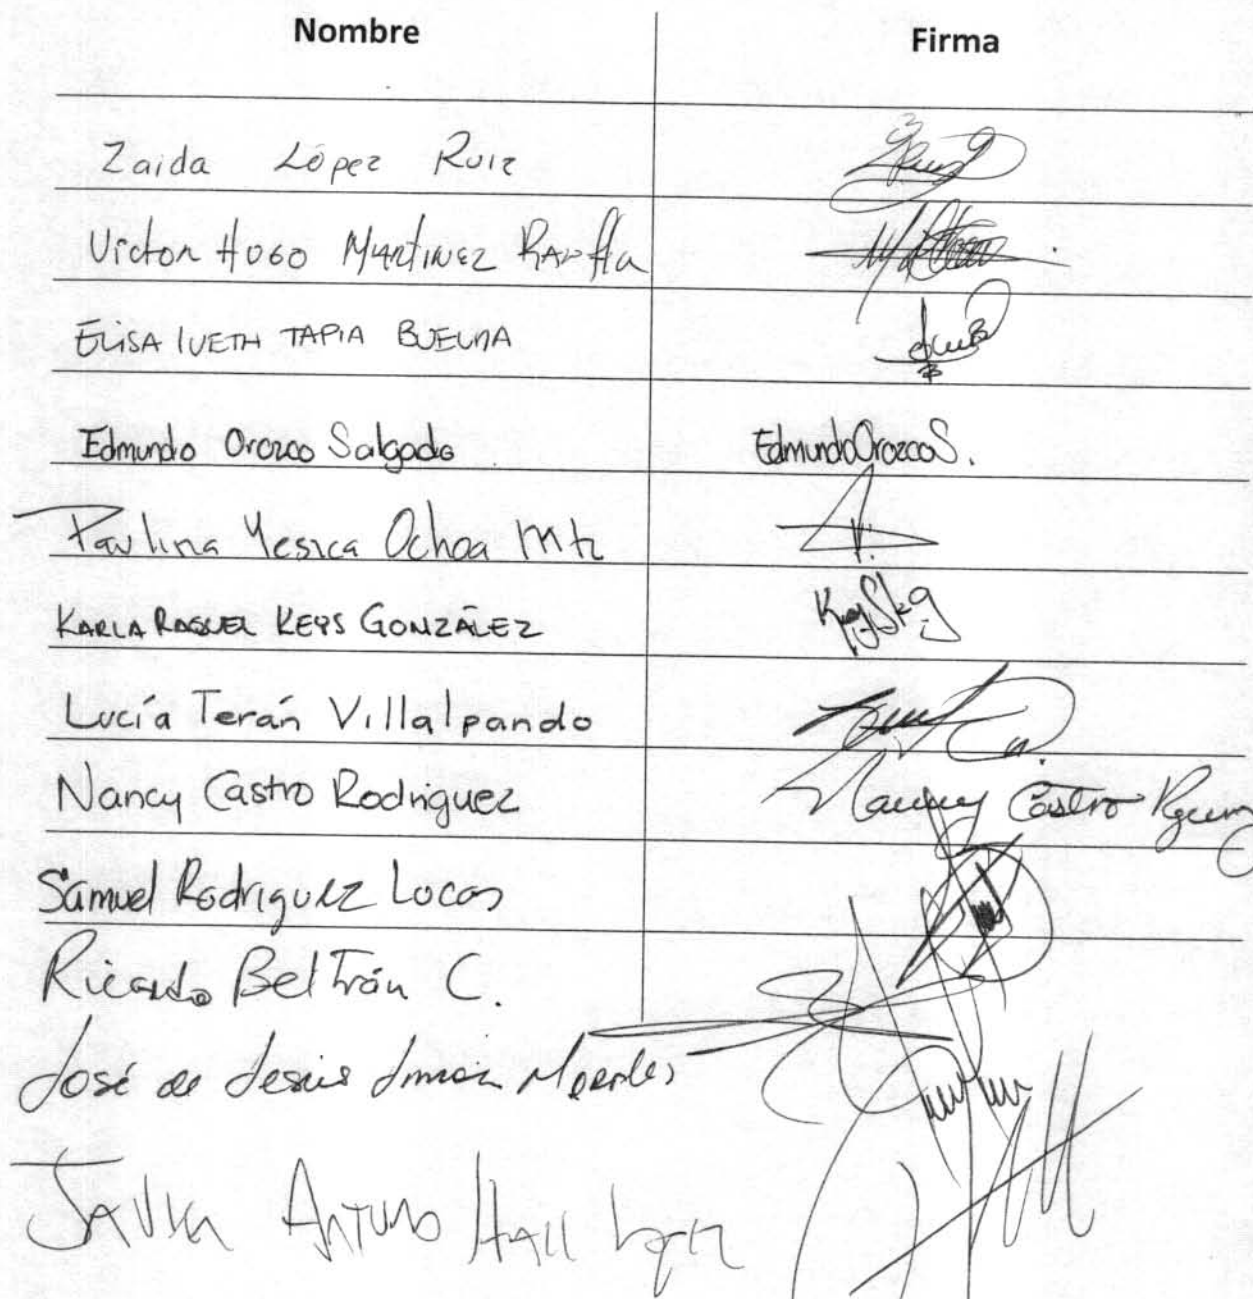 Nombre Firma
Zaida López Ruiz
Victor Hugo Martinez
ELISA IVETH TAPIA BUELNA
Edmundo Orozco Salgado EdmundoOrozcoS.
Paulina Yesica Ochoa Mtz
KARLA RAQUEL KEYS GONZÁLEZ
Lucía Terán Villalpando
Nancy Castro Rodriguez Nancy Castro
Samuel Rodriguez Lucas
Ricardo Beltrán C.
José de Jesús Morales
JAVIER ARTURO HALL